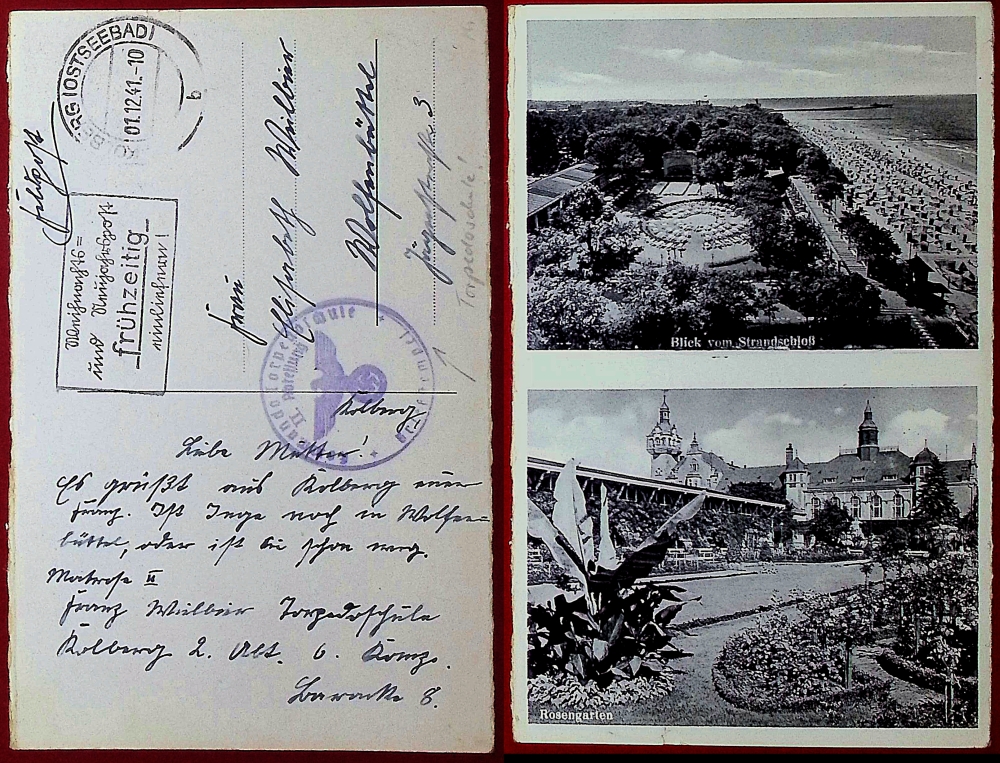 (OSTSEEBAD)
01.12.41.-10
b
Feldpost
Weihnachts=
und Neujahrspost
frühzeitig
einliefern!
Frau
Elisabeth
Wolfenbüttel
3
Torpedoschule!
II. Abteilung
Kolberg
Liebe Mutter!
Es grüßt aus Kolberg euer
Franz. Ist Inge noch in Wolfen=
büttel, oder ist sie schon weg.
Matrose II
Franz Torpedoschule
Kolberg 2. Abt. 6. Komp.
Baracke 8.
Blick vom Strandschloß
Rosengarten